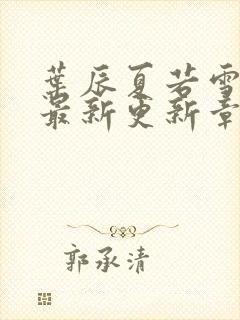 葉辰夏若雪
最新更新章
郭承清